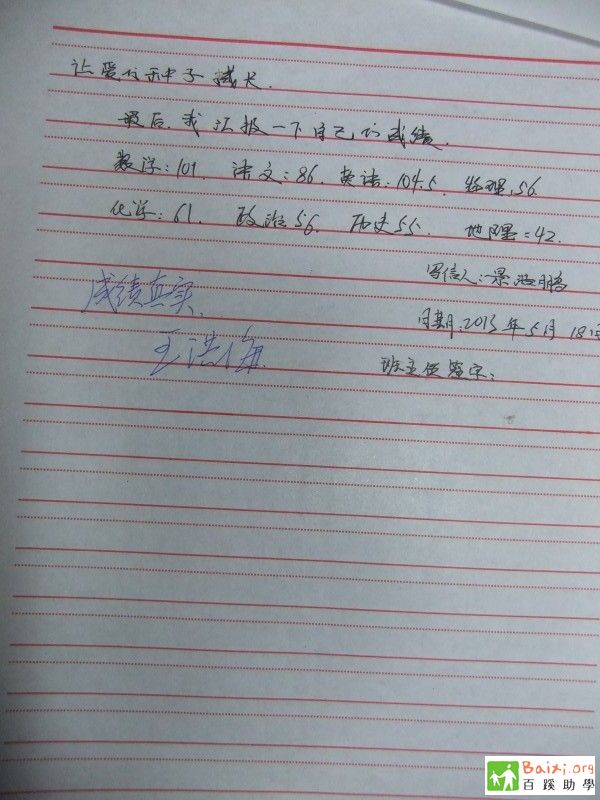 让爱的种子成长.
最后,我汇报一下自己的成绩.
数学:101. 语文:86. 英语:104.5. 物理.56.
化学:61. 政治56. 历史55. 地理:42.
写信人:景浩鹏
日期:2013年5月18日
成绩真实.
王洪海
班主任签字:
Baixi.org
百蹊助學